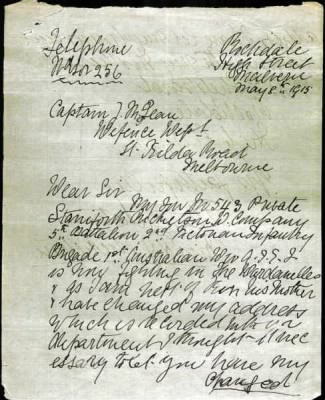 Telephone
Wsor 256
Rochdale
High Street
Malvern
May 8th 1915
Captain J. McLean
Defence Dept
St. Kilda Road
Melbourne
Dear Sir
My son No 543 Private
Company
5th Battalion 2nd Victorian Infantry
Brigade 1st Australian Div A.I.F.
is now fighting in the Dardanelles
& as I am next of kin his Mother
& have changed my address
which is recorded into your
department I thought it nec
essary to let you have my
Changed